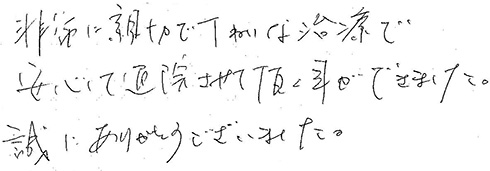 非常に親切で丁ねいな治療で
安心して通院させて頂く事ができました。
誠にありがとうございました。